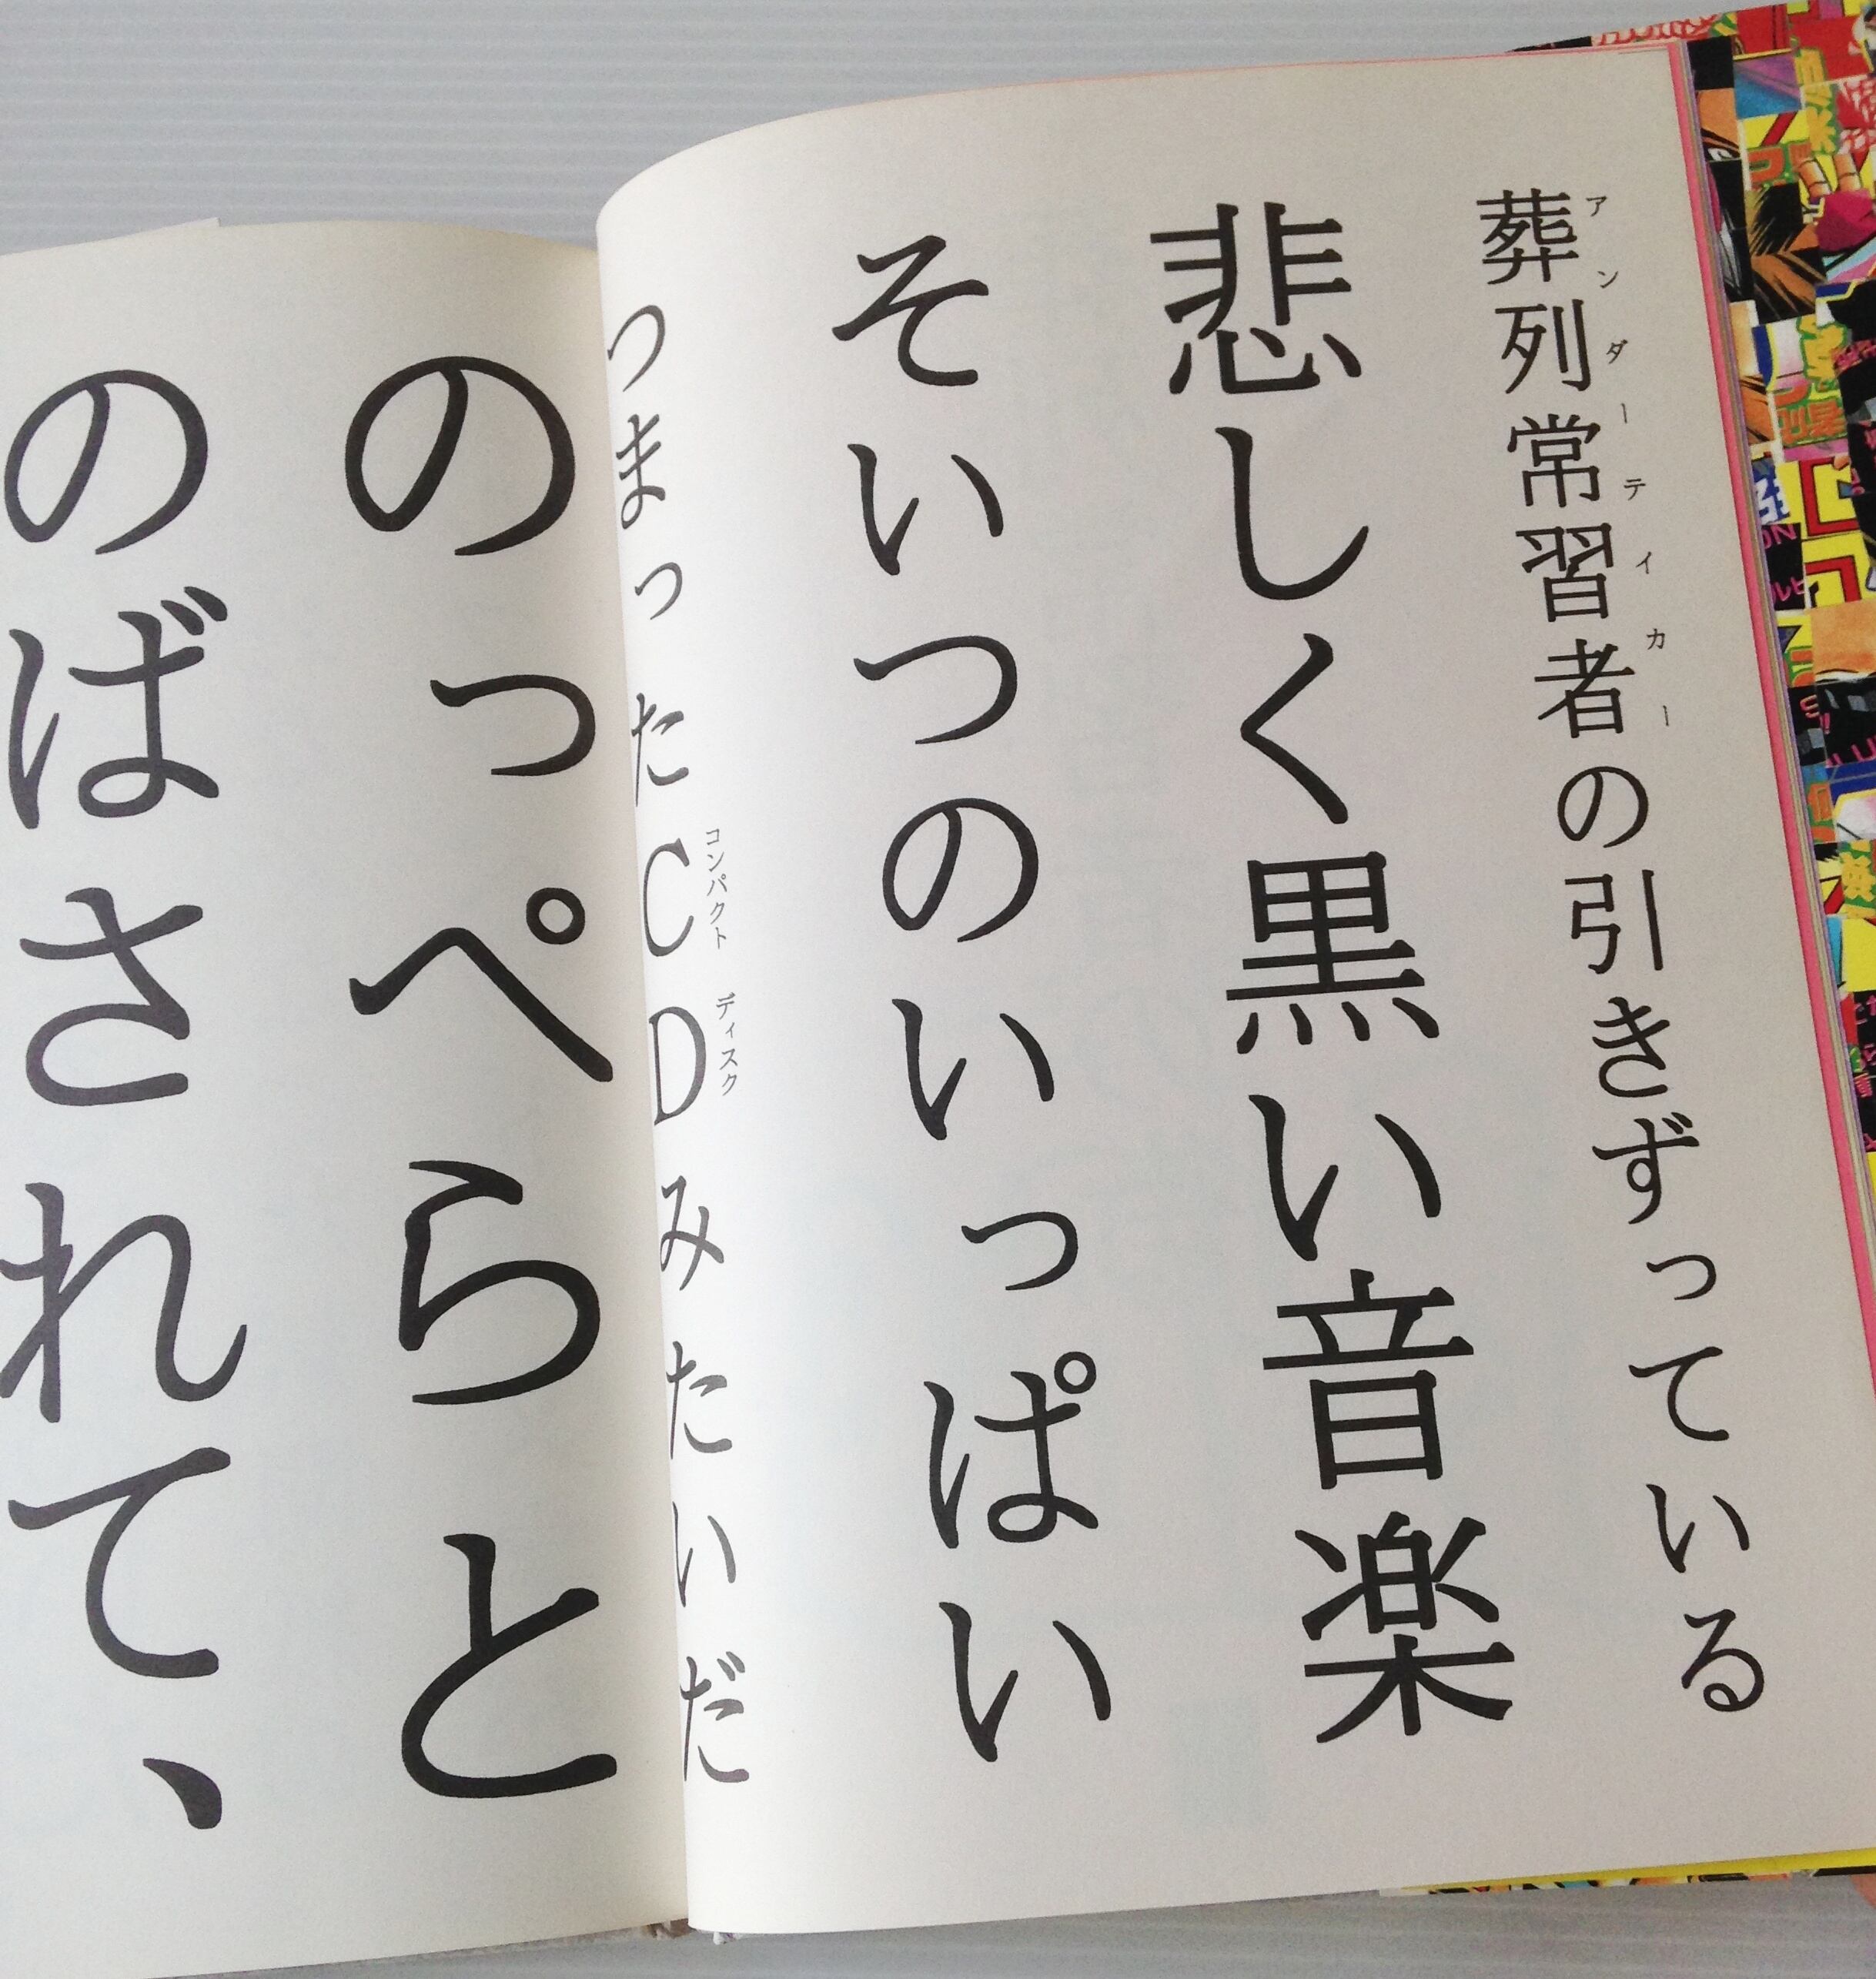 葬列常習者の引きずっている
アンダーテイカー
悲しく黒い音楽
そいつのいっぱい
つまったCDみたいだ
コンパクト ディスク
のっぺらと
のばされて、